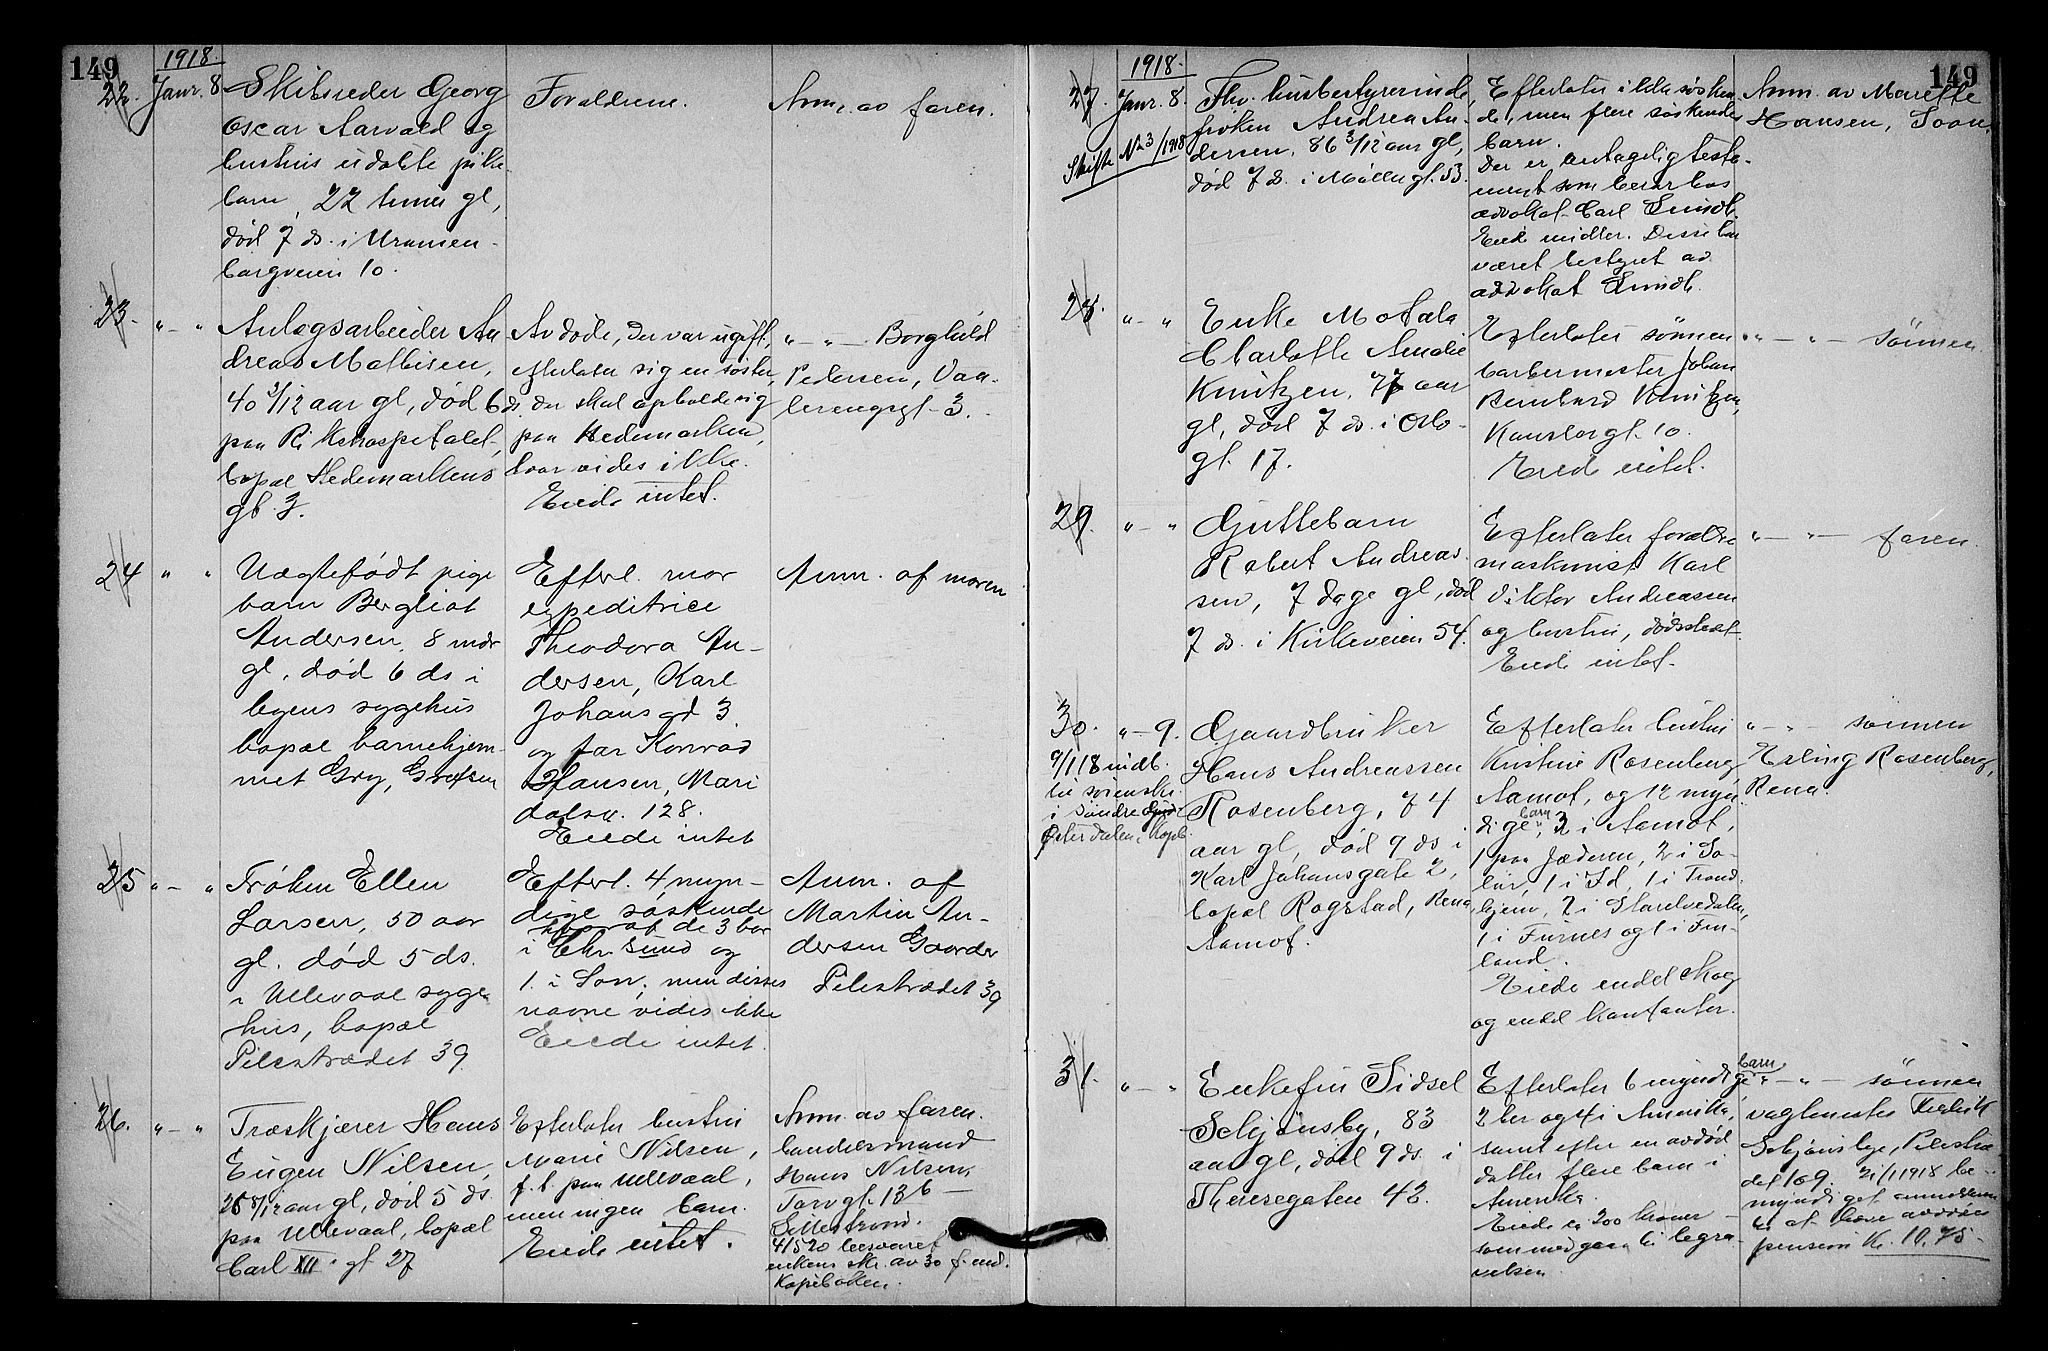 149
1918.
22.
Janr. 8
Skibsreder Georg
Oscar Aarvold og
hustrus udøbte pike-
barn, 22 timer gl,
död 7 ds. i Uranien-
borgveien 10.
Forældrene.
Anm. av faren.
23.
" - "
Anlægsarbeider An
dreas Mathisen,
40 3/12 aar gl, död 6 ds.
paa Rikshospitalet,
bopæl Hedemarkens
gt. 3.
Avdöde, der var ugift,
efterlater sig en søster,
der skal opholde sig
paa Hedemarken,
hvor vides ikke.
Eiede intet.
" - " - Borghild
Pedersen, Vaa-
lerenggt. 3.
24
" "
Uægtefödt pige
barn Bergliot
Andersen, 8 mdr
gl. död 6 ds i
byens sygehus
bopæl barnehjem-
met Gry, Grefsen
Efterl. mor
expeditrice
Theodora An-
dersen, Karl
Johans gd 3.
og far Konrad
Hansen, Mari
dalsv. 128.
Eiede intet
Anm. af moren
25
" - "
Fröken Ellen
Larsen, 50 aar
gl. död 5 ds.
i Ullevaal syge
hus, bopæl
Pilestrædet 39
Efterl. 4 myn-
dige söskende
hvoraf de 3 bor
i Chr. sund og
1 i Son, men disses
navne vides ikke
Eiede intet.
Anm. af
Martin An-
dersen Gaarder
Pilestrædet 39
26.
" - "
Træskjærer Hans
Eugen Nilsen,
25 8/12 aar gl, död 5 ds.
paa Ullevaal, bopæl
Carl XII. gt 27
Efterlater hustru
Marie Nilsen,
f. t. paa Ullevaal,
men ingen barn.
Eiede intet.
Anm. av faren.
handelsmand
Hans Nilsen,
Torvgt. 13 b -
Lillestrøm.
4/5 20 besvaret
enkens skr. av 30 f. md.
Kopiboken.
149
1918.
27.
Janr. 8.
Skifte No 3/1918
Fhv. husbestyrerinde,
fröken Andrea An-
dersen, 86 3/12 aar gl,
död 7 ds. i Møllergt. 53.
Efterlater ikke søsken-
de, men flere søskende-
barn.
Der er antagelig testa-
ment som beror hos
advokat Carl Lundh.
Eiede midler. Disse har
været bestyret av
advokat Lundh.
Anm. av Marette
Hansen, Soon.
28.
" - "
Enke Mofala
Charlotte Amalie
Knutzen, 77 aar
gl, död 7 ds. i Oslo-
gt. 17.
Efterlater sønnen
barbermester Johan
Bernhard Knutzen,
Kanslergt. 10.
Eied intet.
" - " - sönnen.
29.
" - "
Guttebarn
Robert Andreas-
sen, 7 dage gl, död
7 ds. i Kirkeveien 54.
Efterlater forældre
maskinist Karl
Viktor Andreassen
og hustru, dødsstedet.
Eiede intet.
" - " - faren.
30.
" - 9.
9/1 18 indb.
til sorenskr.
i Söndre
Østerdalen, Kopib.
Gaardbruker
Hans Andreassen
Rosenberg, 74
aar gl, död 9 ds i
Karl Johansgate 2,
bopæl Rogstad, Rena,
Aamot.
Efterlater hustru
Kristine Rosenberg
Aamot, og 12 myn-
dige barn, 3 i Aamot,
1 paa Jæderen, 2 i So-
lör, 1 i Id, 1 i Trond-
hjem, 2 i Storelvedalen,
1 i Furnes og 1 i Fin-
land.
Eiede endel skog
og endel kontanter.
" - " - sönnen
Erling Rosenberg,
Rena.
31.
" - "
Enkefru Sidsel
Schjönsby, 83
aar gl, död 9 ds. i
Theresegaten 42.
Efterlater 6 myndige barn
2 her og 4 i Amerika,
samt efter en avdød
datter flere barn i
Amerika.
Eiede ca 200 kroner
som medgaar til begra-
velsen.
" - " - sönnen
vagtmester Fredrik
Schjönsbye, Pilestræ
det 109. 21/1 1918 be-
myndiget anmelderen
til at hæve avdødes
pension Kr. 10.75